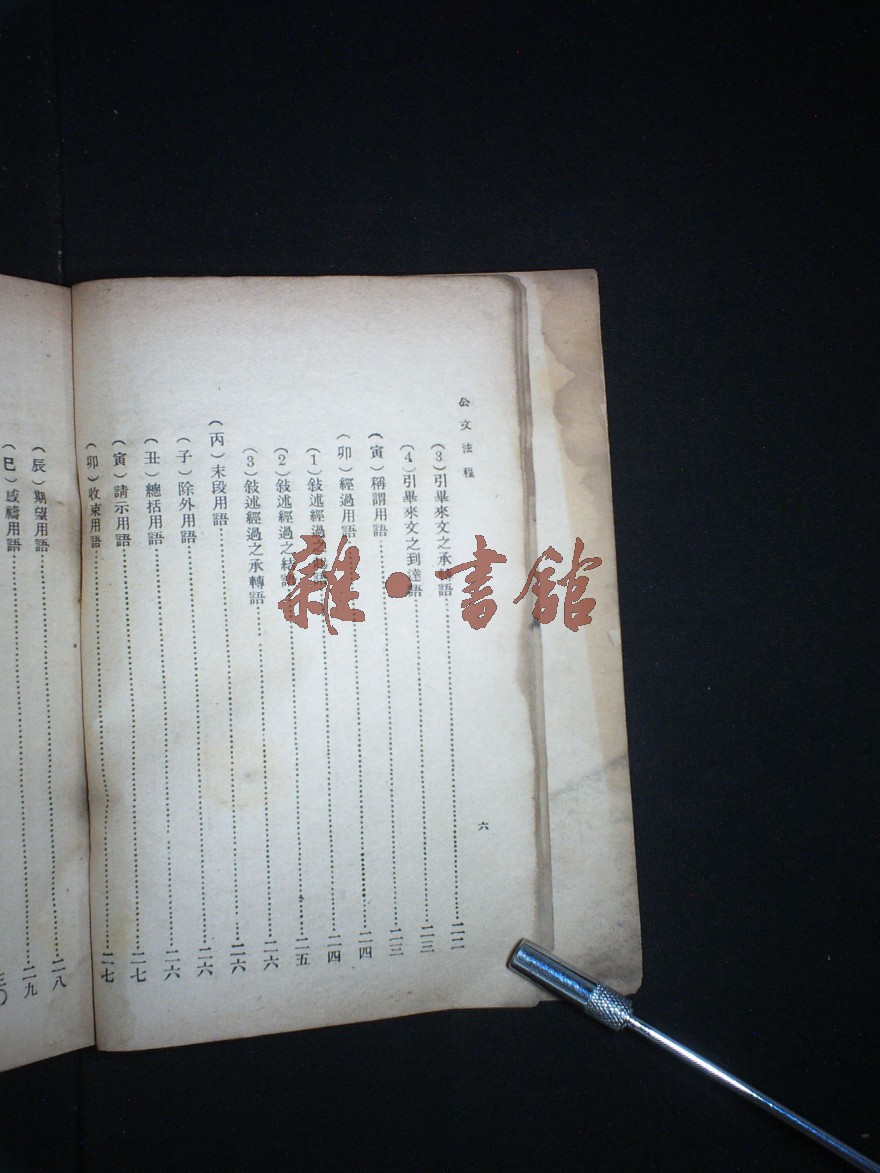 公文法程
六
(3)引畢來文之承轉語……二二
(4)引畢來文之到達語……二三
(寅)稱謂用語……二三
(卯)經過用語……二四
(1)敍述經過之語……二四
(2)敍述經過之結語……二五
(3)敍述經過之承轉語……二六
(丙)末段用語……二六
(子)除外用語……二六
(丑)總括用語……二六
(寅)請示用語……二七
(卯)收束用語……二七
(辰)期望用語……二八
(巳)感禱用語……二九
三〇
雜·書館